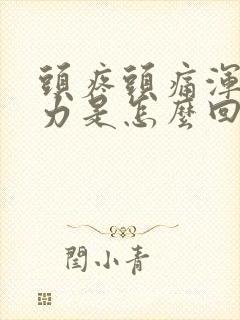 頭疼頭痛渾
力是怎麼回
閆小青